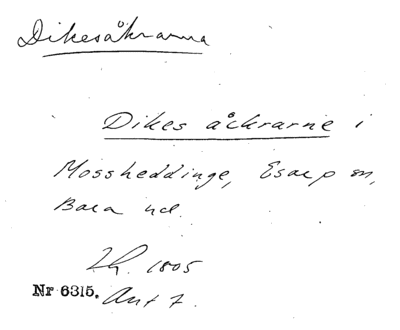 Dikesåkrarna
Dikes åckrarne i
Mossheddinge, Esarp sn,
Bara hd.
1805
Nr 6315. Ant 7.